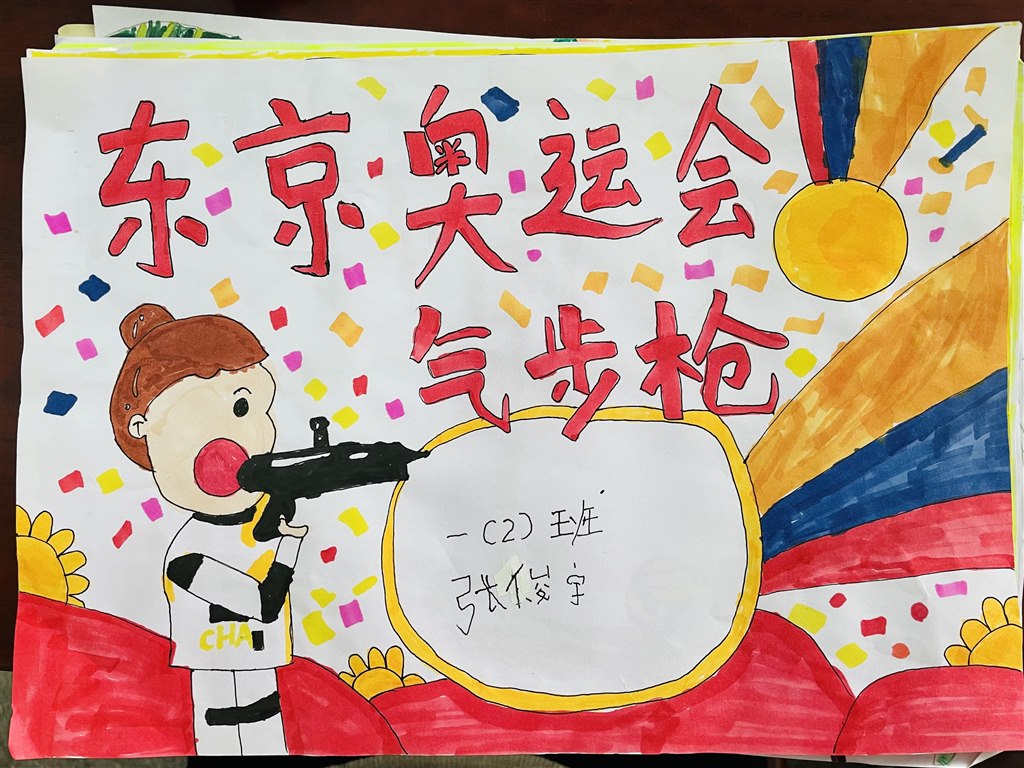 东京奥运会
气步枪
一(2)班
张俊宇
CHA